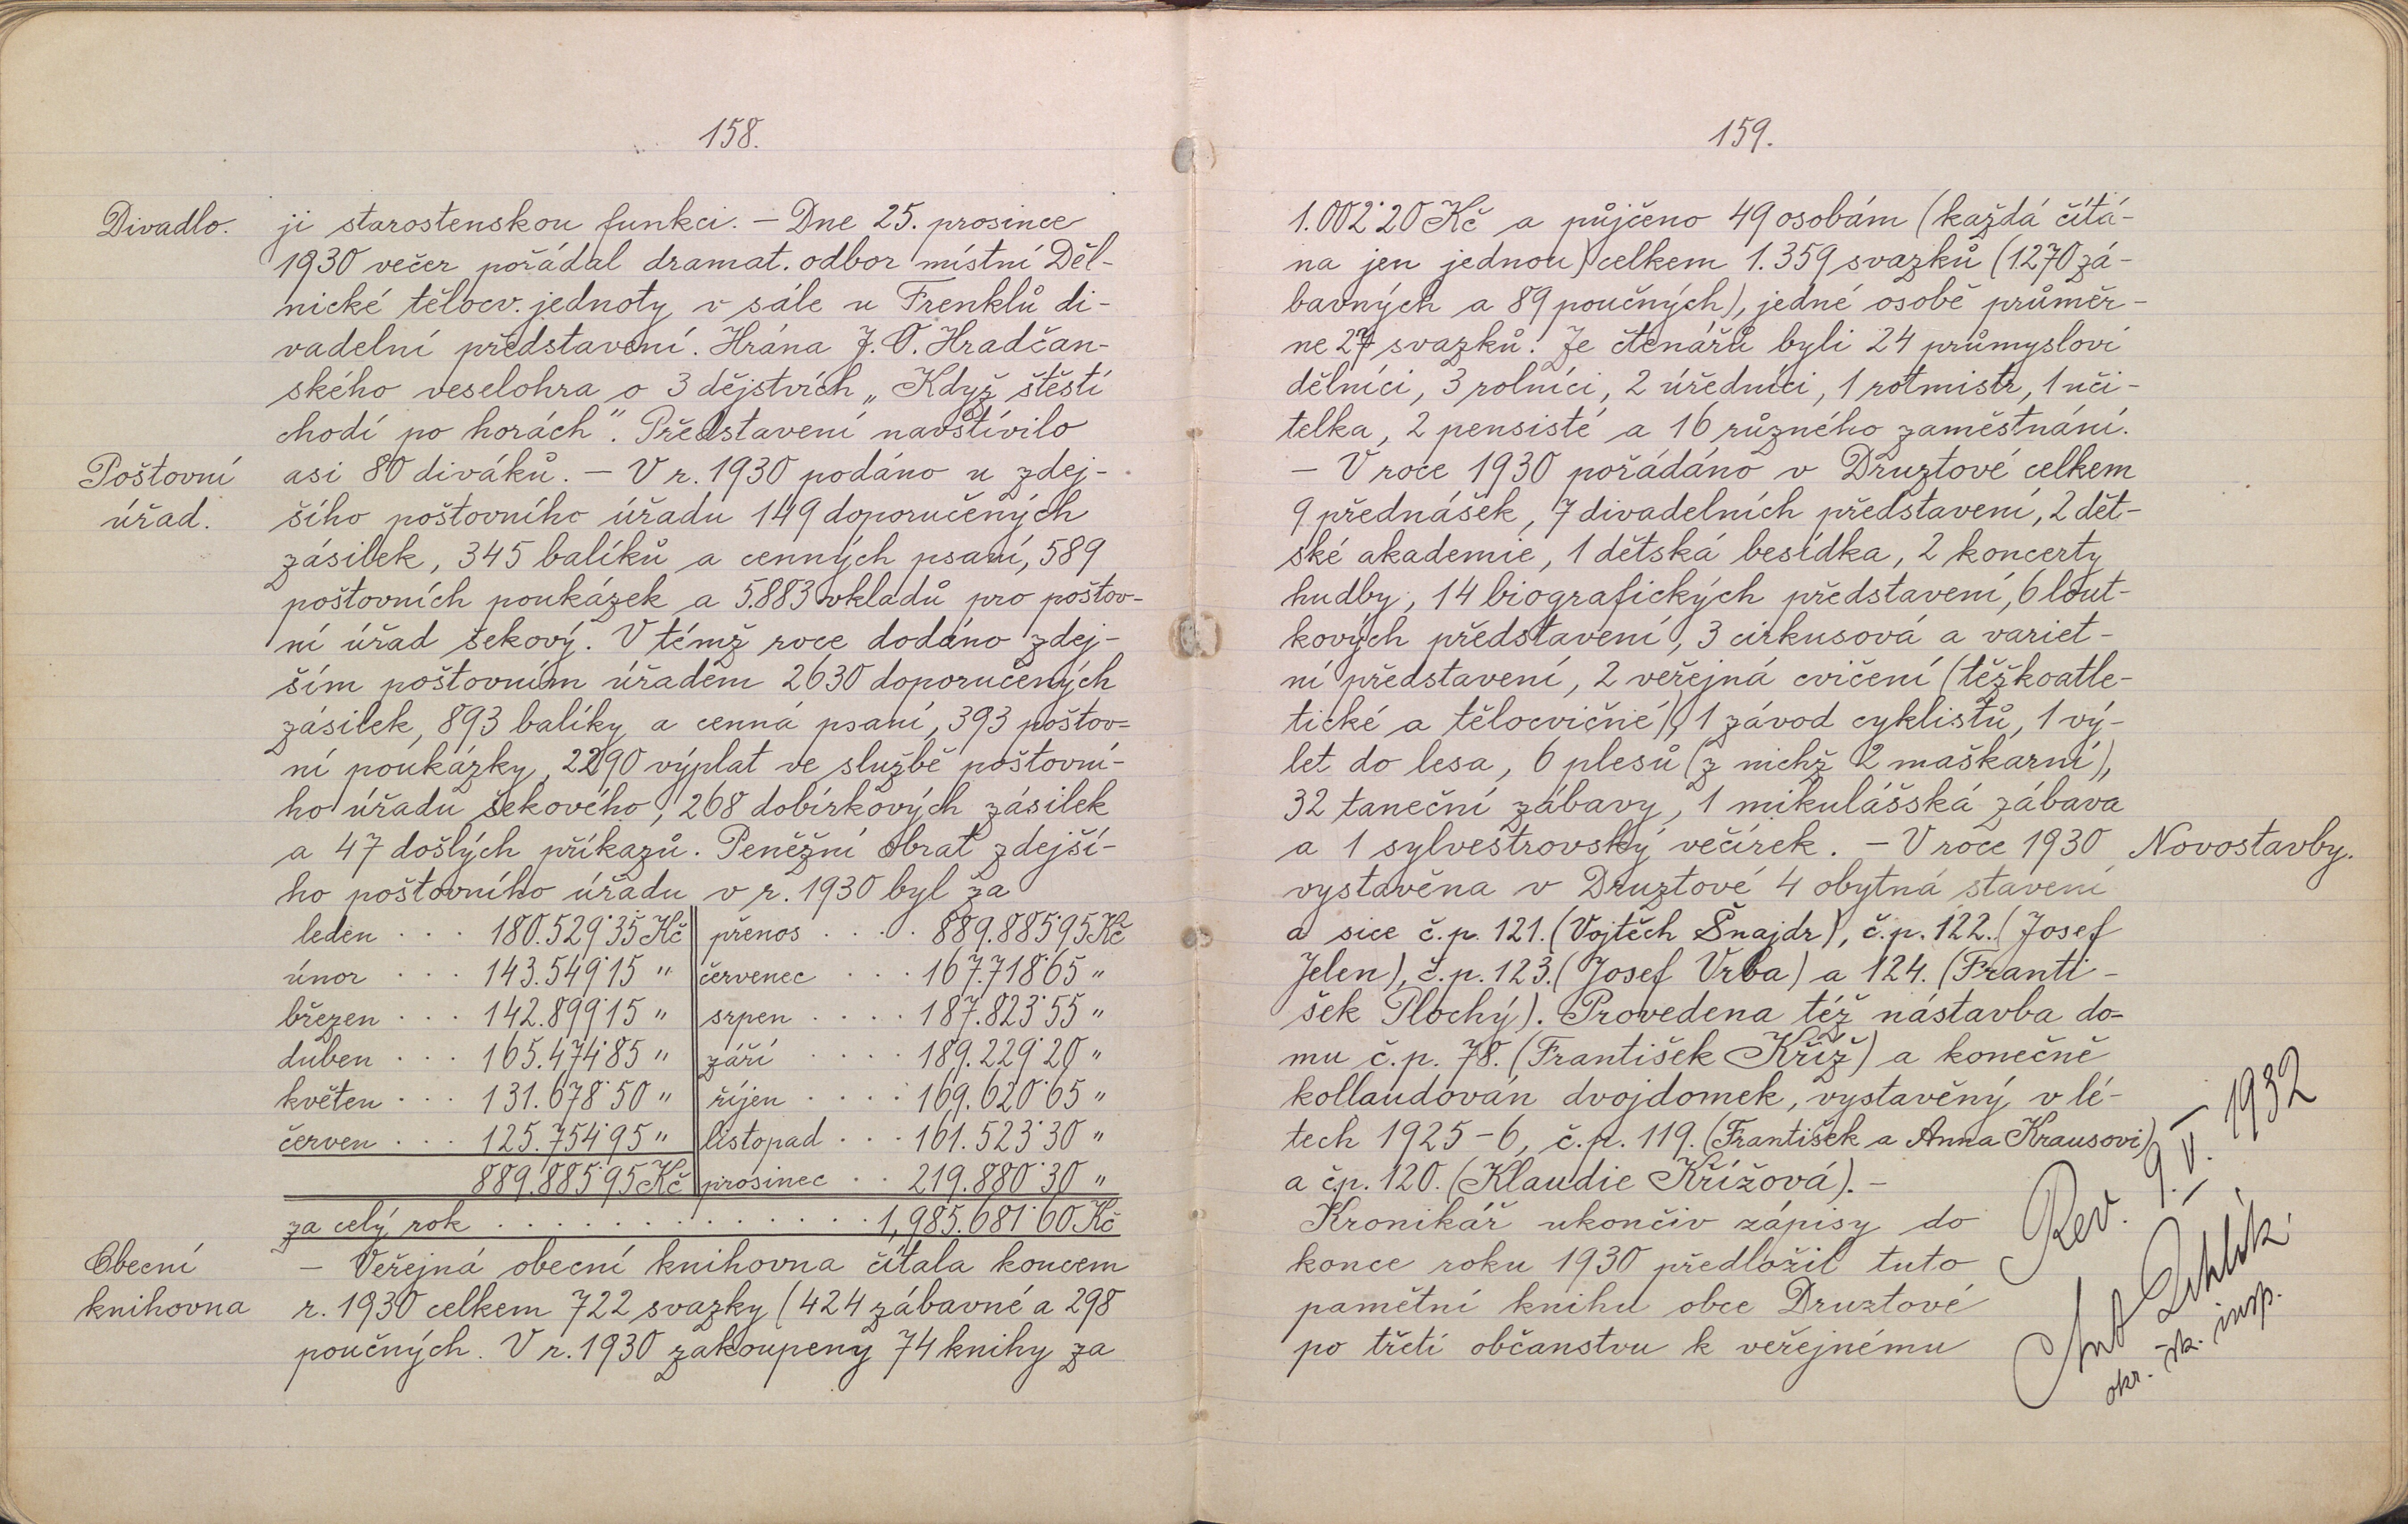 158.
Divadlo.
ji starostenskou funkci. – Dne 25. prosince
1930 večer pořádal dramat. odbor místní Děl-
nické tělocv. jednoty v sále u Frenklů di-
vadelní představení. Hrána J. O. Hradčan-
ského veselohra o 3 dějstvích „Když štěstí
chodí po horách". Představení navštívilo
Poštovní
úřad.
asi 80 diváků. – V r. 1930 podáno u zdej-
šího poštovního úřadu 149 doporučených
zásilek, 345 balíků a cenných psaní, 589
poštovních poukázek a 5.883 vkladů pro poštov-
ní úřad šekový. V témž roce dodáno zdej-
ším poštovním úřadem 2630 doporučených
zásilek, 893 balíky a cenná psaní, 393 poštov-
ní poukázky, 2290 výplat ve službě poštovní-
ho úřadu šekového, 268 dobírkových zásilek
a 47 došlých příkazů. Peněžní obrat zdejší-
ho poštovního úřadu v r. 1930 byl za
leden . . . 180.529˙35 Kč přenos . . . . 889.885˙95 Kč
únor . . . 143.549˙15 " červenec . . . 167.718˙65 "
březen . . . 142.899˙15 " srpen . . . . 187.823˙55 "
duben . . . 165.474˙85 " září . . . . 189.229˙20 "
květen . . . 131.678˙50 " říjen . . . . 169.620˙65 "
červen . . . 125.754˙95 " listopad . . . 161.523˙30 "
889.885˙95 Kč prosinec . . 219.880˙30 "
za celý rok . . . . . . . . . . . . . . 1,985.681˙60 Kč
Obecní
knihovna
– Veřejná obecní knihovna čítala koncem
r. 1930 celkem 722 svazky (424 zábavné a 298
poučných. V r. 1930 zakoupeny 74 knihy za
159.
1.002˙20 Kč a půjčeno 49 osobám (každá čítá-
na jen jednou) celkem 1.359 svazků (1270 zá-
bavných a 89 poučných), jedné osobě průměr-
ne 27 svazků. Ze čtenářů byli 24 průmysloví
dělníci, 3 rolníci, 2 úředníci, 1 rotmistr, 1 uči-
telka, 2 pensisté a 16 různého zaměstnání.
– V roce 1930 pořádáno v Druztové celkem
9 přednášek, 7 divadelních představení, 2 dět-
ské akademie, 1 dětská besídka, 2 koncerty
hudby, 14 biografických představení, 6 lout-
kových představení, 3 cirkusová a variet-
ní představení, 2 veřejná cvičení (těžkoatle-
tické a tělocvičné), 1 závod cyklistů, 1 vý-
let do lesa, 6 plesů (z nichž 2 maškarní),
32 taneční zábavy, 1 mikulášská zábava
a 1 sylvestrovský večírek. – V roce 1930
Novostavby.
vystavěna v Druztové 4 obytná stavení
a sice č.p. 121. (Vojtěch Šnajdr), č.p. 122. (Josef
Jelen), č.p. 123. (Josef Vrba) a 124. (Franti-
šek Plochý). Provedena též nástavba do-
mu č.p. 78. (František Kříž) a konečně
kollaudován dvojdomek, vystavěný v lé-
tech 1925-6, č.p. 119. (František a Anna Krausovi)
a čp. 120. (Klaudie Křížová). –
Kronikář ukončiv zápisy do
konce roku 1930 předložil tuto
pamětní knihu obce Druztové
po třetí občanstvu k veřejnému
Rev. 9. V. 1932
Ant
okr. šk. insp.